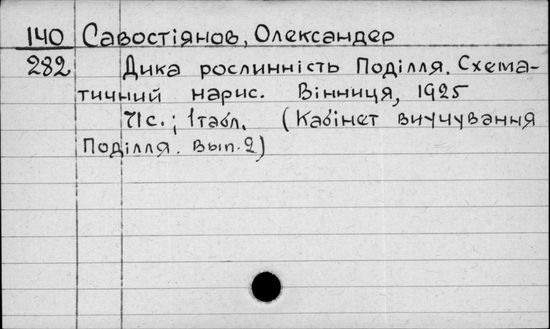 140 Савостіянов, Олександер
282 Дика рослинність Поділля. Схема-
тичний нарис. Вінниця, 1925
71с.; 1табл. (Кабінет виучування
Поділля. Вып.2)